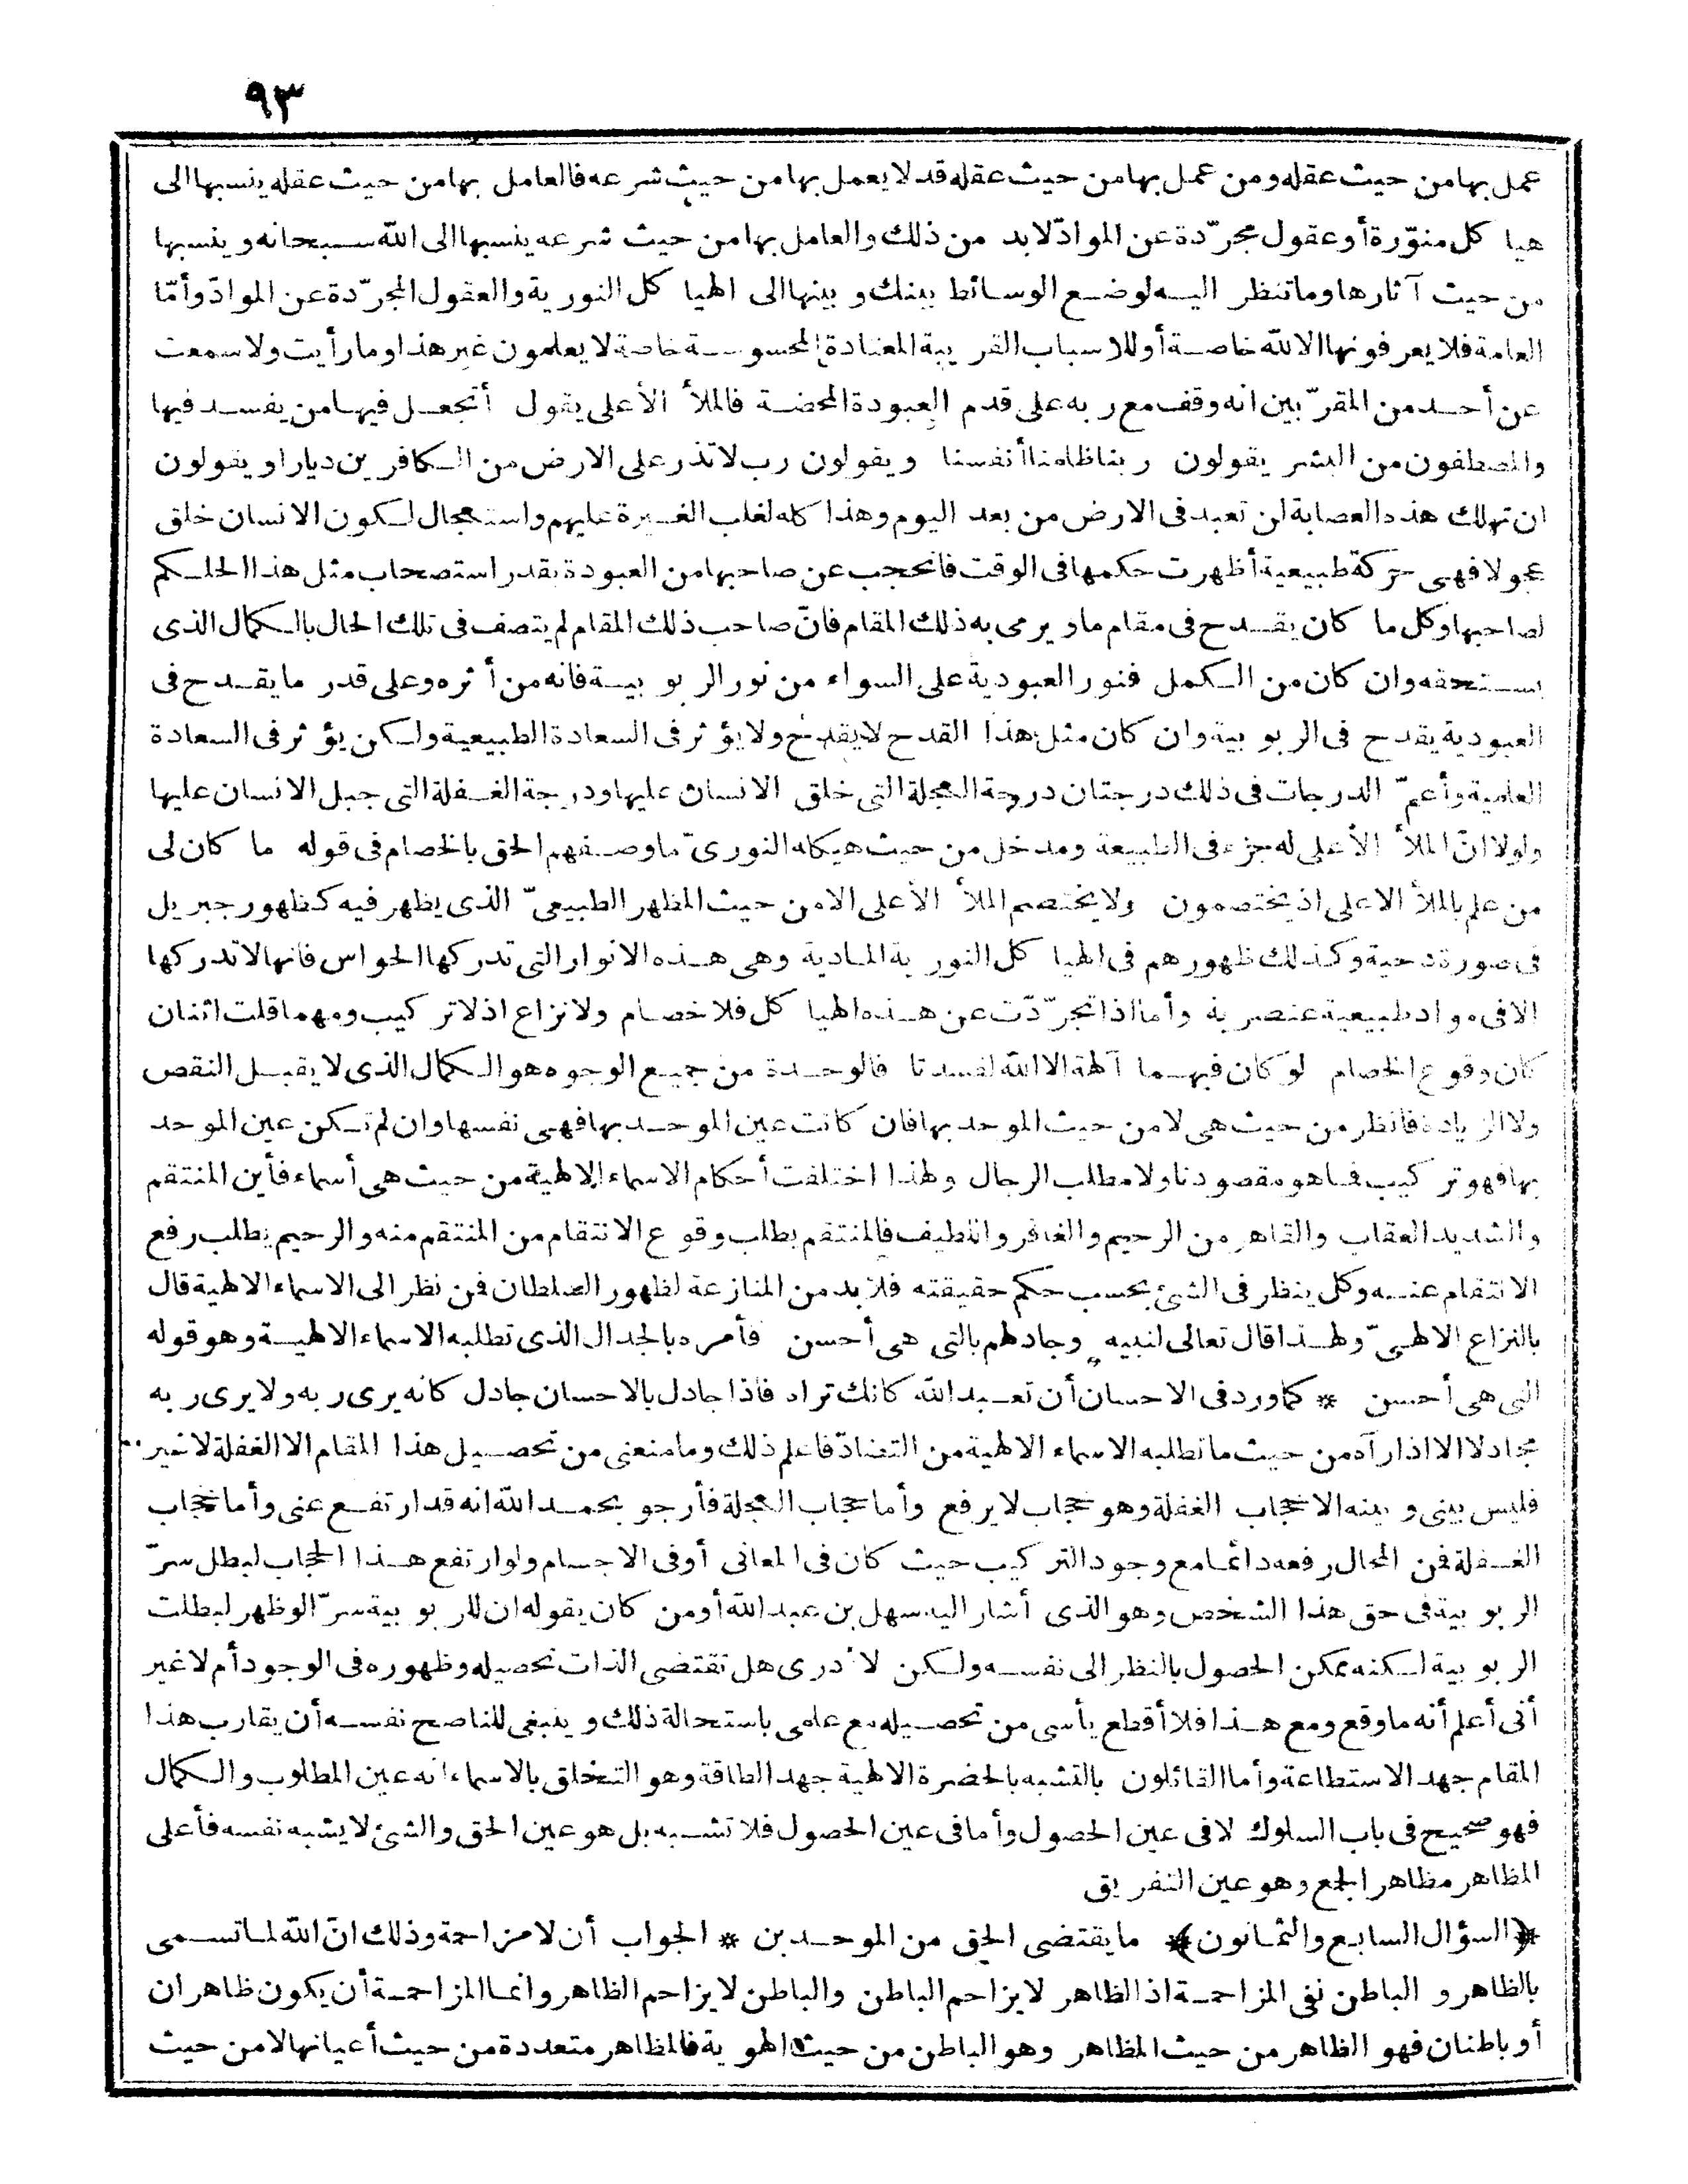 ٩٣
عمل بها من حيث عقله ومن عمل بها من حيث عقله قد لا يعمل بها من حيث شرعه فالعامل بها من حيث عقله ينسبها الى
هيا كل منوّرة أو عقول مجرّدة عن الموادّ لا بد من ذلك والعامل بها من حيث شرعه ينسبها الى اللّه سبحانه وينسبها
من حيث آثارها وما تنظر اليه لوضع الوسائط بينك و بينها الى الهيا كل النورية والعقول المجرّدة عن الموادّ وأمّا
العامة فلا يعرفونها الا للّه خاصة أو للاسباب القريبة المعتادة المحسوسة خاصة لا يعلمون غير هذا وما رأيت ولا سمعت
عن أحد من المقرّبين انه وقف مع ربه على قدم العبودة المحضة فالملأ الأعلى يقول أتجعل فيها من يفسد فيها
والمصطفون من البشر يقولون ربنا ظلمنا أنفسنا ويقولون رب لا تذر على الارض من الكافرين ديارا ويقولون
ان تهلك هذه العصابة لن تعبد فى الارض من بعد اليوم وهذا كله لغلب الغيرة عليهم واستعجال لكون الانسان خلق
عجولا فهى حركة طبيعية أظهرت حكمها فى الوقت فانحجب عن صاحبها من العبودة بقدر استصحاب مثل هذا الحكم
لصاحبها وكل ما كان يقدح فى مقام ما ويرمى به ذلك المقام فانّ صاحب ذلك المقام لم يتصف فى تلك الحال بالكمال الذى
يستحقه وان كان من الكمل فنور العبودية على السواء من نور الربوبية فانه من أثره وعلى قدر ما يقدح فى
العبودية يقدح فى الربوبية وان كان مثل هذا القدح لا يقدح ولا يؤثر فى السعادة الطبيعية ولكن يؤثر فى السعادة
العلمية وأعمّ الدرجات فى ذلك درجتان درجة العجلة التى خلق الانسان عليها ودرجة الغفلة التى جبل الانسان عليها
ولولا انّ الملأ الأعلى له جزء فى الطبيعة ومدخل من حيث هيكله النورىّ ما وصفهم الحق بالخصام فى قوله ما كان لى
من علم بالملأ الاعلى اذ يختصمون ولا يختصم الملأ الأعلى الا من حيث المظهر الطبيعىّ الذى يظهر فيه كظهور جبريل
فى صورة دحية وكذلك ظهورهم فى الهيا كل النورية المادية وهى هذه الانوار التى تدركها الحواس فانها لا تدركها
الا فى مواد طبيعية عنصرية وأما اذا تجرّدت عن هذه الهيا كل فلا خصام ولا نزاع اذ لا تركيب ومهما قلت اثنان
كان وقوع الخصام لو كان فيهما آلهة الا اللّه لفسدتا فالوحدة من جميع الوجوه هو الكمال الذى لا يقبل النقص
ولا الزيادة فانظر من حيث هى لا من حيث الموحد بها فان كانت عين الموحد بها فهى نفسها وان لم تكن عين الموحد
بها فهو تركيب فما هو مقصودنا ولا مطلب الرجال ولهذا اختلفت أحكام الاسماء الالهية من حيث هى أسماء فأين المنتقم
والشديد العقاب والقاهر من الرحيم والغافر واللطيف فالمنتقم يطلب وقوع الانتقام من المنتقم منه والرحيم يطلب رفع
الانتقام عنه وكل ينظر فى الشئ بحسب حكم حقيقته فلا بد من المنازعة لظهور السلطان فمن نظر الى الاسماء الالهية قال
بالنزاع الالهىّ ولهذا قال تعالى لنبيه وجادلهم بالتى هى أحسن فأمره بالجدال الذى تطلبه الاسماء الالهية وهو قوله
التى هى أحسن * كما ورد فى الاحسان أن تعبد اللّه كانك تراه فاذا جادل بالاحسان جادل كانه يرى ربه ولا يرى ربه
مجادلا الا اذا رآه من حيث ما تطلبه الاسماء الالهية من التضادّ فاعلم ذلك وما منعنى من تحصيل هذا المقام الا الغفلة لا غير
فليس بينى و بينه الا حجاب الغفلة وهو حجاب لا يرفع وأما حجاب العجلة فأرجو بحمد اللّه انه قد ارتفع عنى وأما حجاب
الغفلة فمن المحال رفعه دائما مع وجود التركيب حيث كان فى المعانى أو فى الاجسام ولو ارتفع هذا الحجاب لبطل سرّ
الربوبية فى حق هذا الشخص وهو الذى أشار اليه سهل بن عبد اللّه أو من كان يقوله ان للربوبية سرّا لو ظهر لبطلت
الربوبية لكنه ممكن الحصول بالنظر الى نفسه ولكن لا أدرى هل تقتضى الذات تحصيله وظهوره فى الوجود أم لا غير
أنى أعلم أنه ما وقع ومع هذا فلا أقطع يأسى من تحصيله مع علمى باستحالة ذلك وينبغى للناصح نفسه أن يقارب هذا
المقام جهد الاستطاعة وأما القائلون بالتشبه بالحضرة الالهية جهد الطاقة وهو التخلق بالاسماء انه عين المطلوب والكمال
فهو صحيح فى باب السلوك لا فى عين الحصول وأما فى عين الحصول فلا تشبه بل هو عين الحق والشئ لا يشبه نفسه فأعلى
المظاهر مظاهر الجمع وهو عين التفريق
﴿السؤال السابع والثمانون﴾ ما يقتضى الحق من الموحدين * الجواب أن لا مزاحمة وذلك انّ اللّه لما تسمى
بالظاهر و الباطن نفى المزاحمة اذ الظاهر لا يزاحم الباطن والباطن لا يزاحم الظاهر وانما المزاحمة أن يكون ظاهران
أو باطنان فهو الظاهر من حيث المظاهر وهو الباطن من حيث الهوية فالمظاهر متعددة من حيث أعيانها لا من حيث